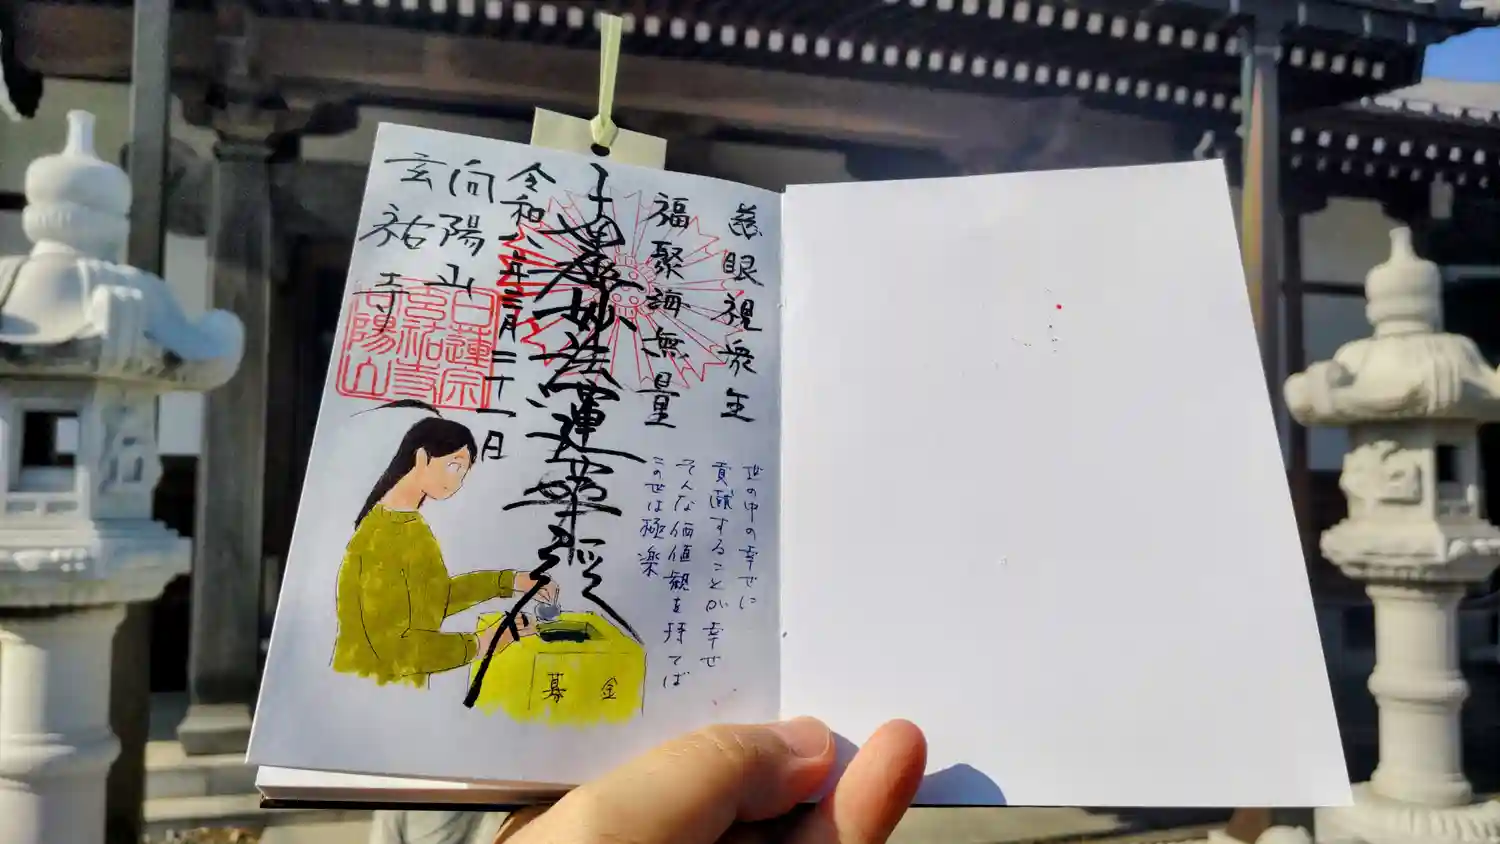 慈眼視衆生
福聚海無量
世の中の幸せに
貢献することが幸せ
そんな価値観を持てば
この世は極楽
南無妙法蓮華経
令和八年三月二十一日
向陽山
玄祐寺
日蓮宗
玄祐寺
向陽山
募金